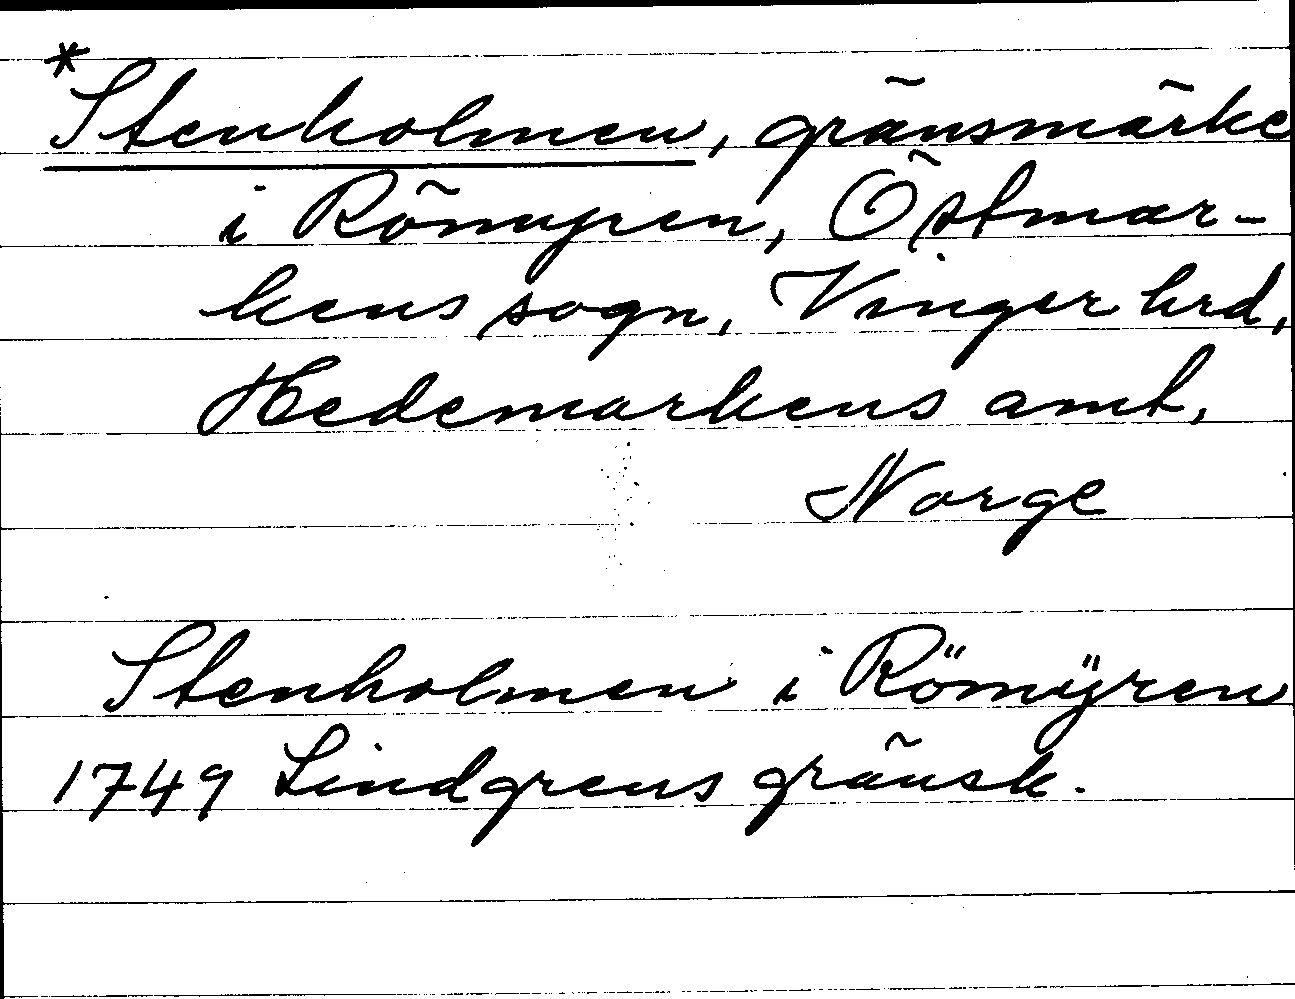 *Stenholmen, gränsmärke
i Römyren, Östmar-
kens sogn, Vinger hrd,
Hedemarkens amt,
Norge
Stenholmen i Römÿren
1749 Lindgrens gränsk.